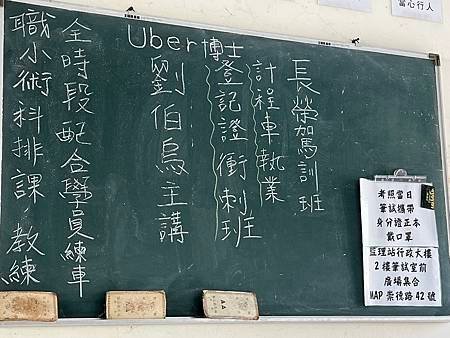 當心行人
長榮駕訓班
計程車執業
登記證衝刺班
Uber博士
劉伯烏主講
全時段配合學員練車
職小術科排課 教練
考照當日
筆試攜帶
身分證正本
戴口罩
監理站行政大樓
2樓筆試室前
廣場集合
MAP 崇德路 42 號